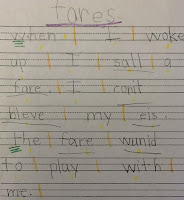 fares
when I woke
up I sall a
fare. I conit
bleve my eis.
the fare wunid
to play with
me.